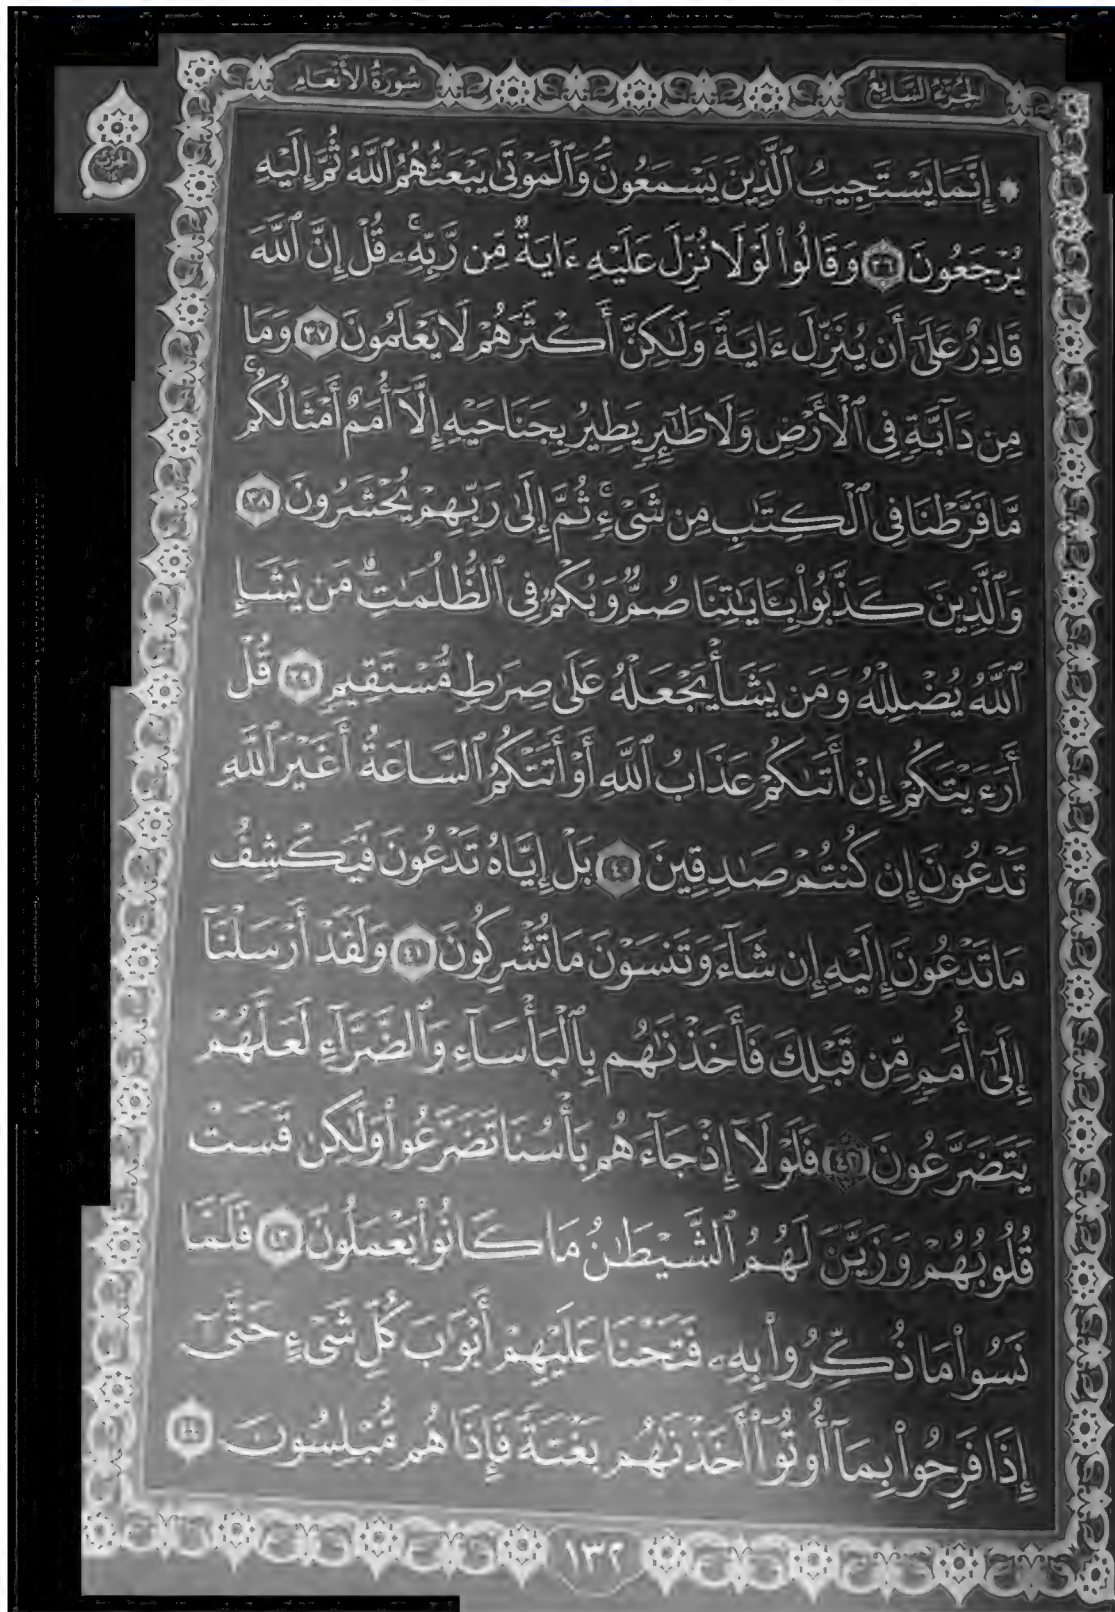 الجزء السابع
سورة الأنعام
۞ إِنَّمَا يَسْتَجِيبُ ٱلَّذِينَ يَسْمَعُونَۘ وَٱلْمَوْتَىٰ يَبْعَثُهُمُ ٱللَّهُ ثُمَّ إِلَيْهِ
يُرْجَعُونَ ٣٦ وَقَالُوا۟ لَوْلَا نُزِّلَ عَلَيْهِ ءَايَةٌ مِّن رَّبِّهِۦۚ قُلْ إِنَّ ٱللَّهَ
قَادِرٌ عَلَىٰٓ أَن يُنَزِّلَ ءَايَةً وَلَٰكِنَّ أَكْثَرَهُمْ لَا يَعْلَمُونَ ٣٧ وَمَا
مِن دَآبَّةٍ فِى ٱلْأَرْضِ وَلَا طَٰٓئِرٍ يَطِيرُ بِجَنَاحَيْهِ إِلَّآ أُمَمٌ أَمْثَالُكُمۚ
مَّا فَرَّطْنَا فِى ٱلْكِتَٰبِ مِن شَىْءٍۚ ثُمَّ إِلَىٰ رَبِّهِمْ يُحْشَرُونَ ٣٨
وَٱلَّذِينَ كَذَّبُوا۟ بِـَٔايَٰتِنَا صُمٌّ وَبُكْمٌ فِى ٱلظُّلُمَٰتِۗ مَن يَشَإِ
ٱللَّهُ يُضْلِلْهُ وَمَن يَشَأْ يَجْعَلْهُ عَلَىٰ صِرَٰطٍ مُّسْتَقِيمٍ ٣٩ قُلْ
أَرَءَيْتَكُمْ إِنْ أَتَىٰكُمْ عَذَابُ ٱللَّهِ أَوْ أَتَتْكُمُ ٱلسَّاعَةُ أَغَيْرَ ٱللَّهِ
تَدْعُونَ إِن كُنتُمْ صَٰدِقِينَ ٤٠ بَلْ إِيَّاهُ تَدْعُونَ فَيَكْشِفُ
مَا تَدْعُونَ إِلَيْهِ إِن شَآءَ وَتَنسَوْنَ مَا تُشْرِكُونَ ٤١ وَلَقَدْ أَرْسَلْنَآ
إِلَىٰٓ أُمَمٍ مِّن قَبْلِكَ فَأَخَذْنَٰهُم بِٱلْبَأْسَآءِ وَٱلضَّرَّآءِ لَعَلَّهُمْ
يَتَضَرَّعُونَ ٤٢ فَلَوْلَآ إِذْ جَآءَهُم بَأْسُنَا تَضَرَّعُوا۟ وَلَٰكِن قَسَتْ
قُلُوبُهُمْ وَزَيَّنَ لَهُمُ ٱلشَّيْطَٰنُ مَا كَانُوا۟ يَعْمَلُونَ ٤٣ فَلَمَّا
نَسُوا۟ مَا ذُكِّرُوا۟ بِهِۦ فَتَحْنَا عَلَيْهِمْ أَبْوَٰبَ كُلِّ شَىْءٍ حَتَّىٰٓ
إِذَا فَرِحُوا۟ بِمَآ أُوتُوٓا۟ أَخَذْنَٰهُم بَغْتَةً فَإِذَا هُم مُّبْلِسُونَ ٤٤
١٣٢